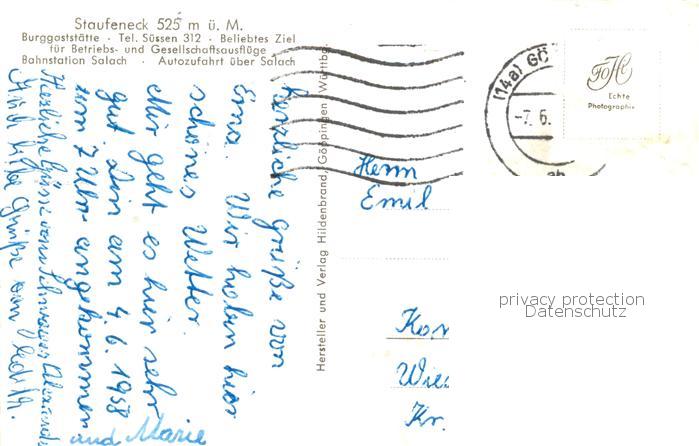 Staufeneck 525 m ü. M.
Burggaststätte · Tel. Süssen 312 · Beliebtes Ziel
für Betriebs- und Gesellschaftsausflüge
Bahnstation Salach · Autozufahrt über Salach
herzliche Grüße von
Erna. Wir haben hier
schönes Wetter.
Mir geht es hier sehr
gut. Bin am 4.6.1958
um 7 Uhr angekommen
und Marie
Herzliche Grüsse vom Schwager Alexander
Auch liebe Grüße von
Hersteller und Verlag Hildenbrand, Göppingen Württbg.
(14a) GÖ
-7. 6.
Echte
Photographie
Herrn
Emil
Kon
Wie
Kr.
privacy protection
Datenschutz